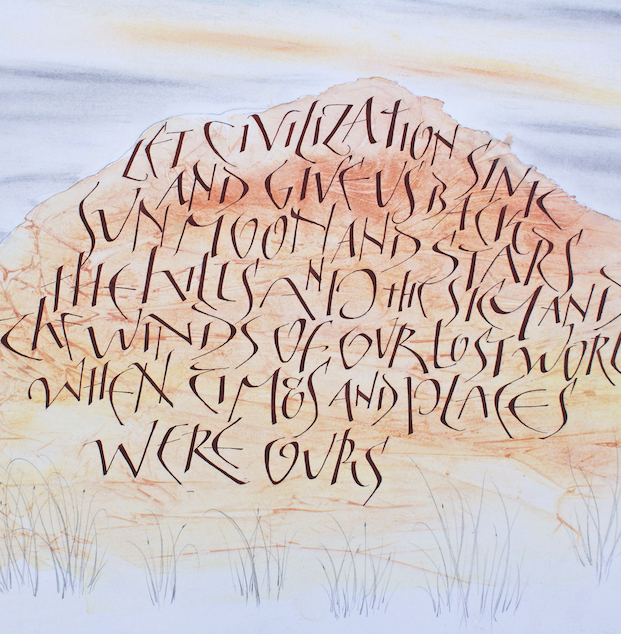 LET CIVILIZATION SINK
AND GIVE US BACK
SUN MOON AND STARS
THE HILLS AND THE SKY AND
THE WINDS OF OUR LOST WORL
WHEN TIMES AND PLACES
WERE OURS